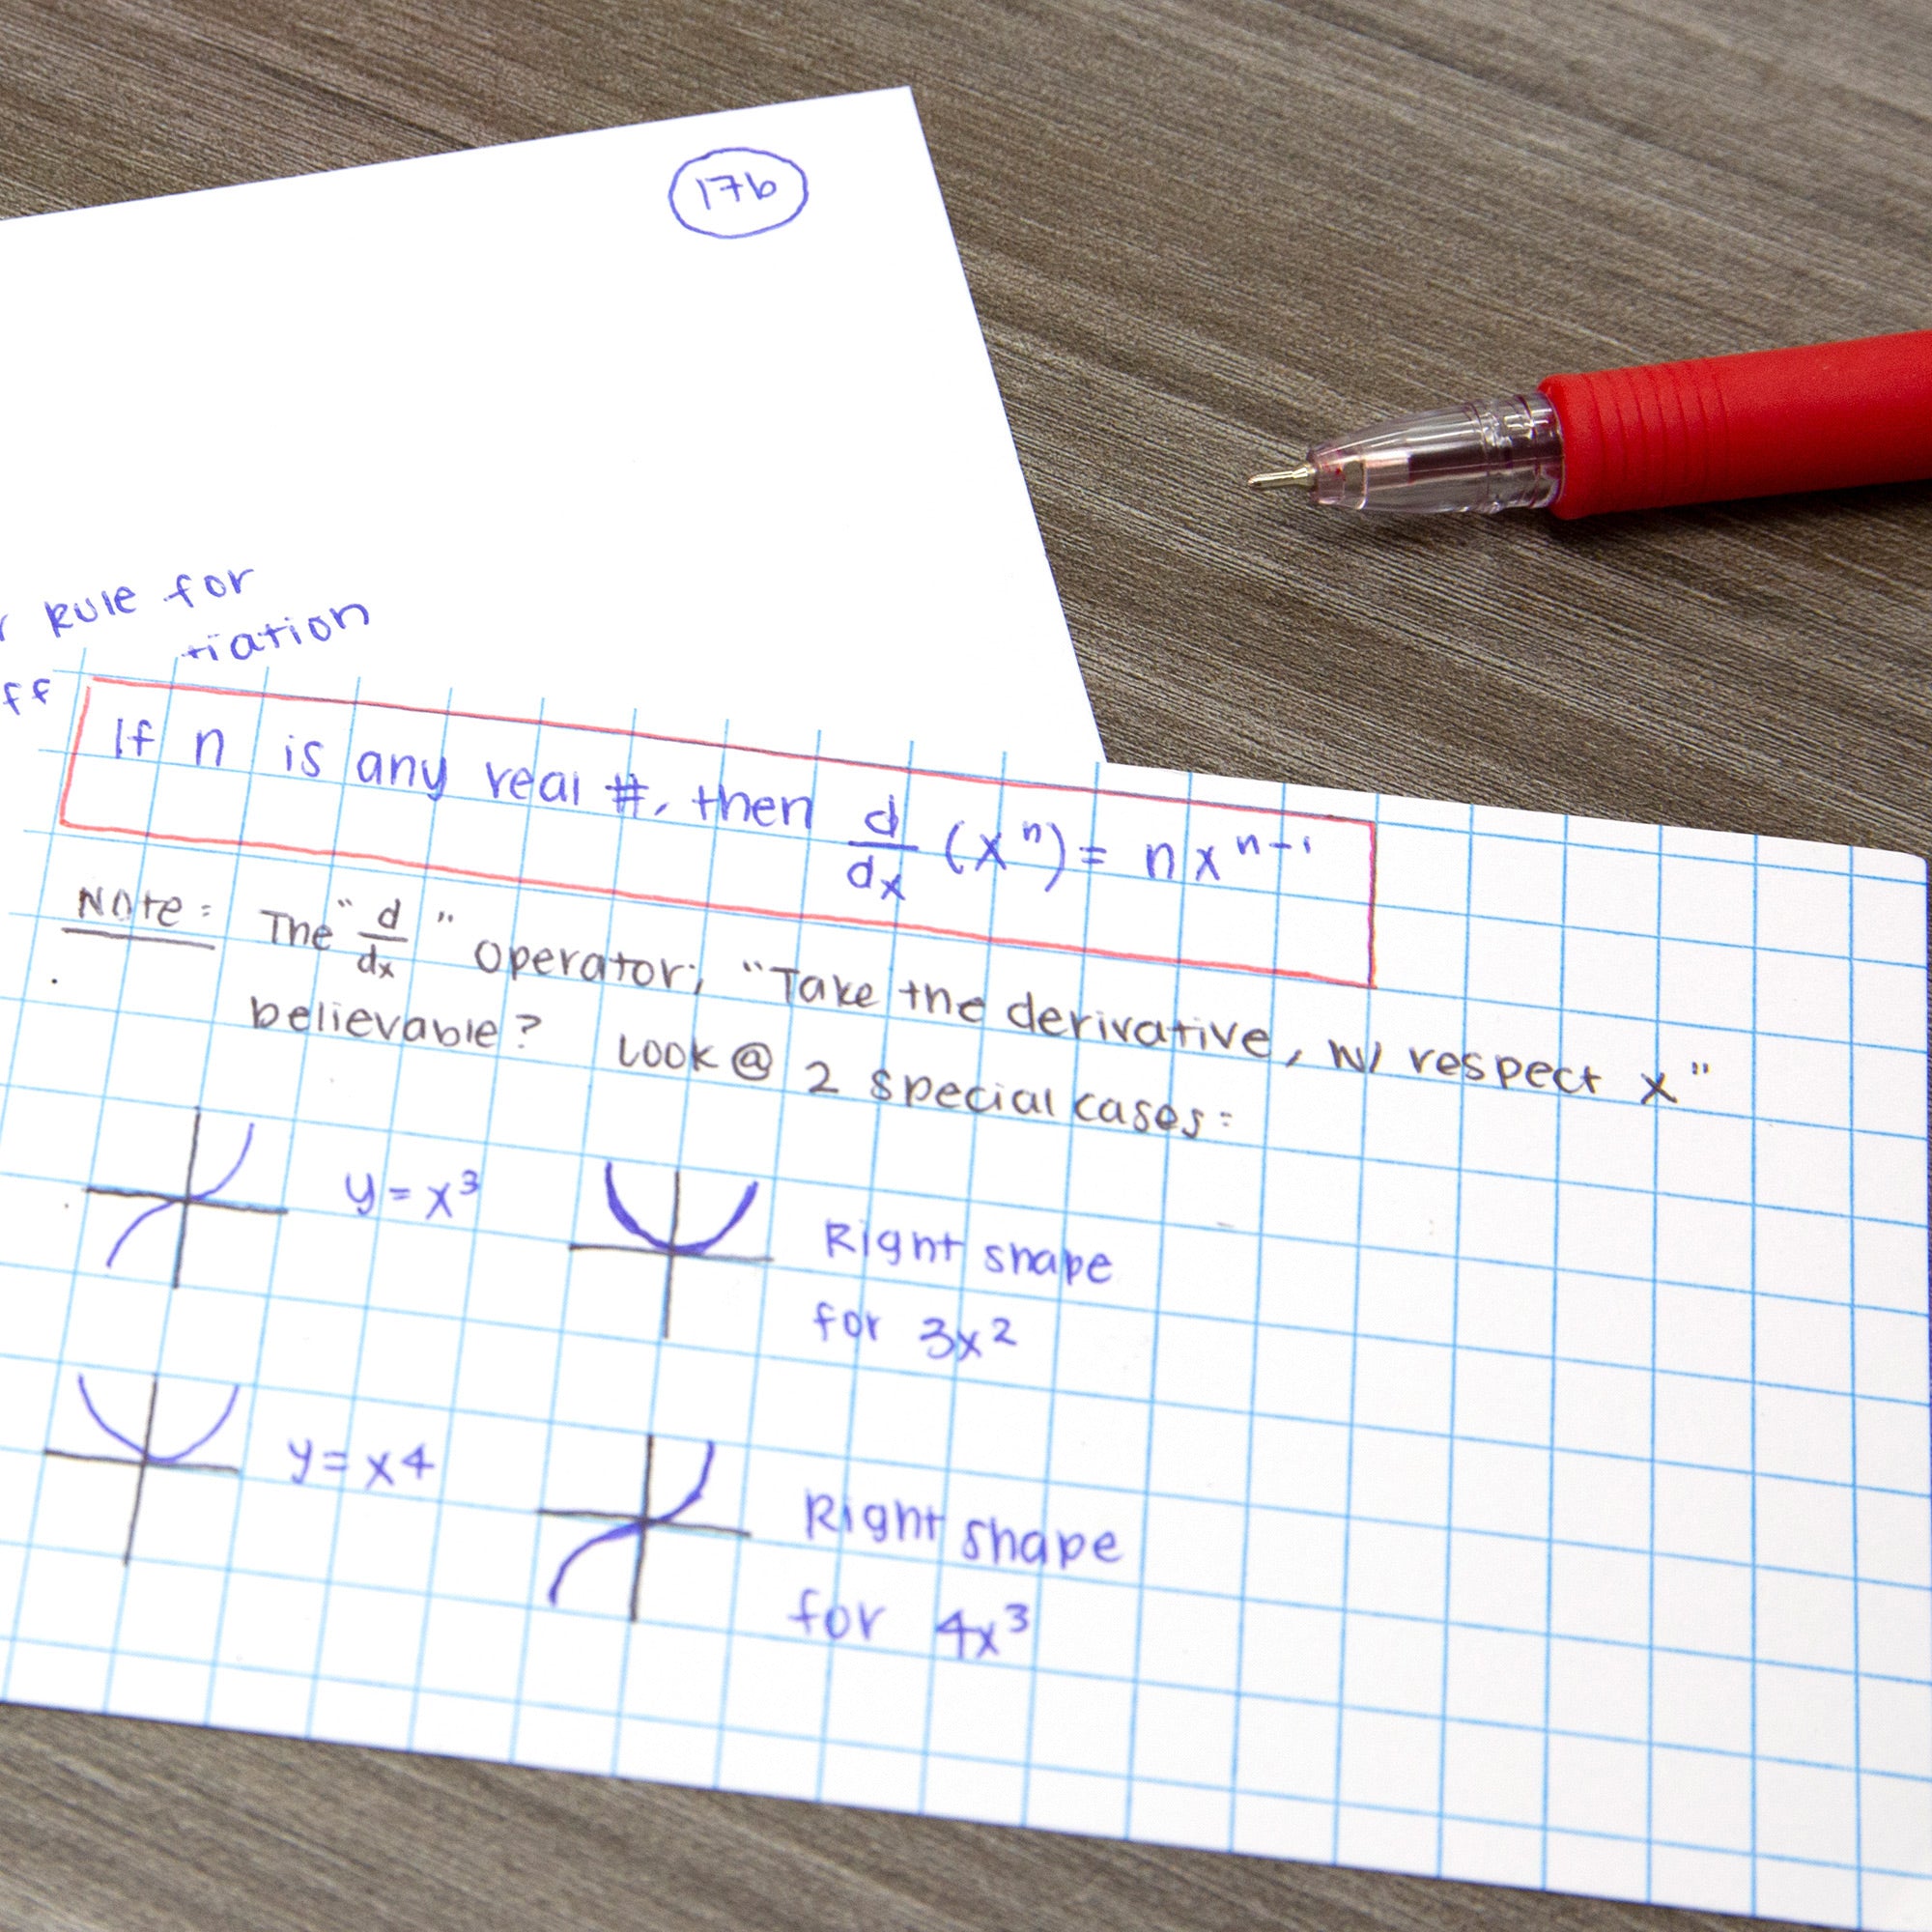 17b
Rule for
tiation
ff
If n is any real #, then d/dx (xⁿ) = nxⁿ⁻¹
Note: The "d/dx" operator; "Take the derivative, w/ respect x"
believable? Look @ 2 special cases:
y = x³
Right shape
for 3x²
y = x4
Right shape
for 4x³